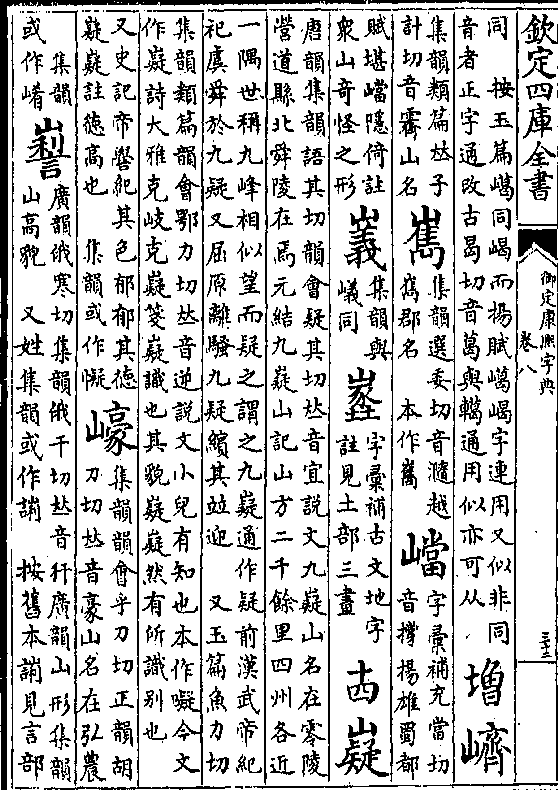 欽定四庫全書
御定康熙字典
卷八
同　按玉篇嶱同㟞而揚賦嶱嵑字連用又似非同
音者正字通改古曷切音葛與轕通用似亦可从
增
集韻類篇𠀤子
計切音霽山名
嶲
集韻選委切音瀡越
巂郡名　本作巂
字彙補充當切
音撑揚雄蜀都
賦堪隱倚註
衆山奇怪之形
嶬
集韻與
㠖同
字彙補古文地字
註見土部三畫
古
嶷
唐韻集韻語其切韻會疑其切𠀤音宜說文九疑山名在零陵
營道縣北舜陵在焉元結九嶷山記山方二千餘里四州各近
一隅世稱九峰相似望而疑之謂之九疑通作疑前漢武帝紀
祀虞舜於九疑又屈原離騷九疑繽其竝迎　又玉篇魚力切
集韻類篇韻會鄂力切𠀤音逆說文小兒有知也本作礙今文
作嶷詩大雅克岐克嶷箋嶷識也其貌嶷嶷然有所識別也
又史記帝嚳紀其色郁郁其德
嶷嶷註德高也　集韻或作
集韻韻會乎刀切正韻胡
刀切𠀤音豪山名在弘農
集韻
或作崤
廣韻俄寒切集韻俄干切𠀤音犴廣韻山形集韻
山高貌　又姓集韻或作　按舊本見言部